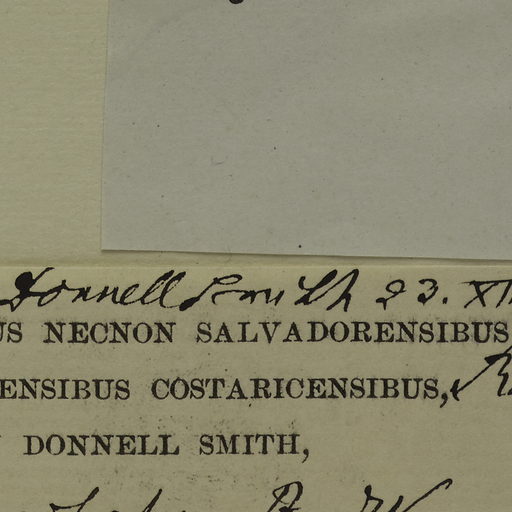 Donnell Smith 23. XII
US NECNON SALVADORENSIBUS
ENSIBUS COSTARICENSIBUS,
DONNELL SMITH,